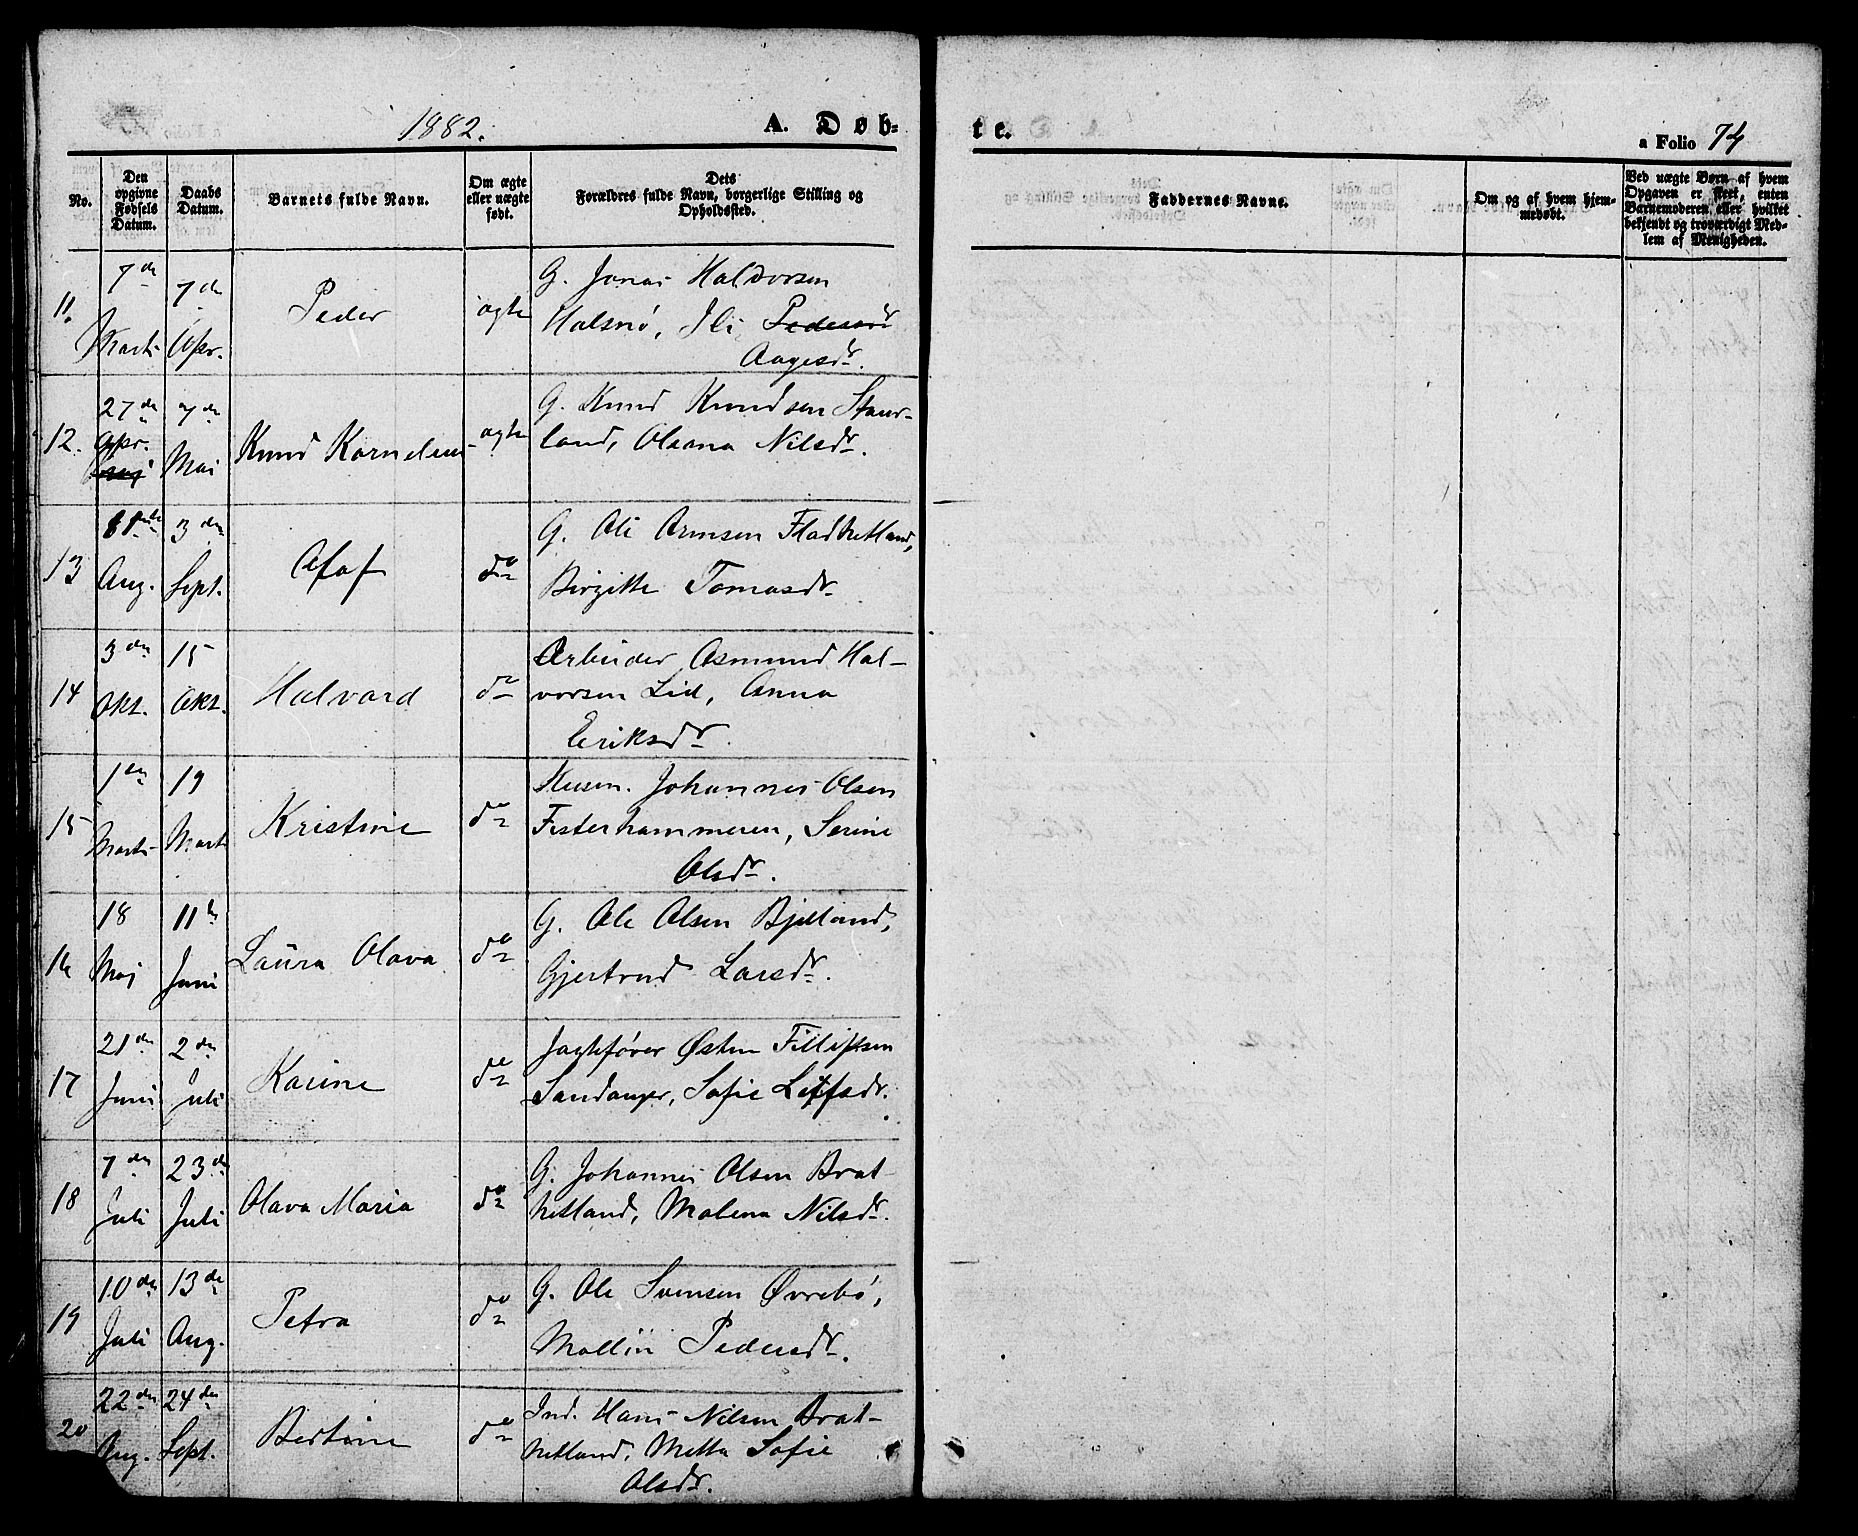 1882.
A. Døb-
te.
a Folio 74
No.
Den opgivne Fødsels Datum.
Daabs Datum.
Barnets fulde Navn.
Om ægte eller uægte født.
Dets Forældres fulde Navn, borgerlige Stilling og Opholdssted.
Faddernes Navne.
Om og af hvem hjemmedøbt.
Ved uægte Børn af hvem Opgaven er skeet, enten Barnemoderen eller hvilket bekjendt og troværdigt Medlem af Menigheden.
11. 7de Marts 7de Apr. Peder ægte G. Jonas Haldorsen
Halsnø, Pedersdr
Aagesdr.
12. 27de Apr. 7de Mai Knud Kornelius ægte G. Knud Knudsen Staur-
land, Olsana Nilsdr.
13 Aug. 3den Sept. Olaf do G. Ole Fladhetland,
Birgitte Tomasdr
14 3den Okt. 15 Okt. Halvard do Arbeider Asmund Hal-
vorsen Lid, Anna
Eriksdr.
15 1den Marts 19 Marts Kristine do Husm. Johannes Olsen
Fisterhammeren, Serine
Olsdr.
16 18 Maj 11te Juni Laura Olava do G. Ole Olsen Bjelland,
Gjertrud Larsdr.
17 21de Juni 2den Juli Karine do Jagtefører Østen Fillipsen
Sandanger, Sofie Leifsdr.
18 7den Juli 23de Juli Olava Maria do G. Johannes Olsen Brat
hetland, Malena Nilsdr.
19 10de Juli 13de Aug. Petra do G. Ole Svensen Øvrebø,
Malliin Pedersdr.
20 22den Aug. 24de Sept. Bertine do Ind. Hans Nilsen Brat-
hetland, Metta Sofie
Olsdr.